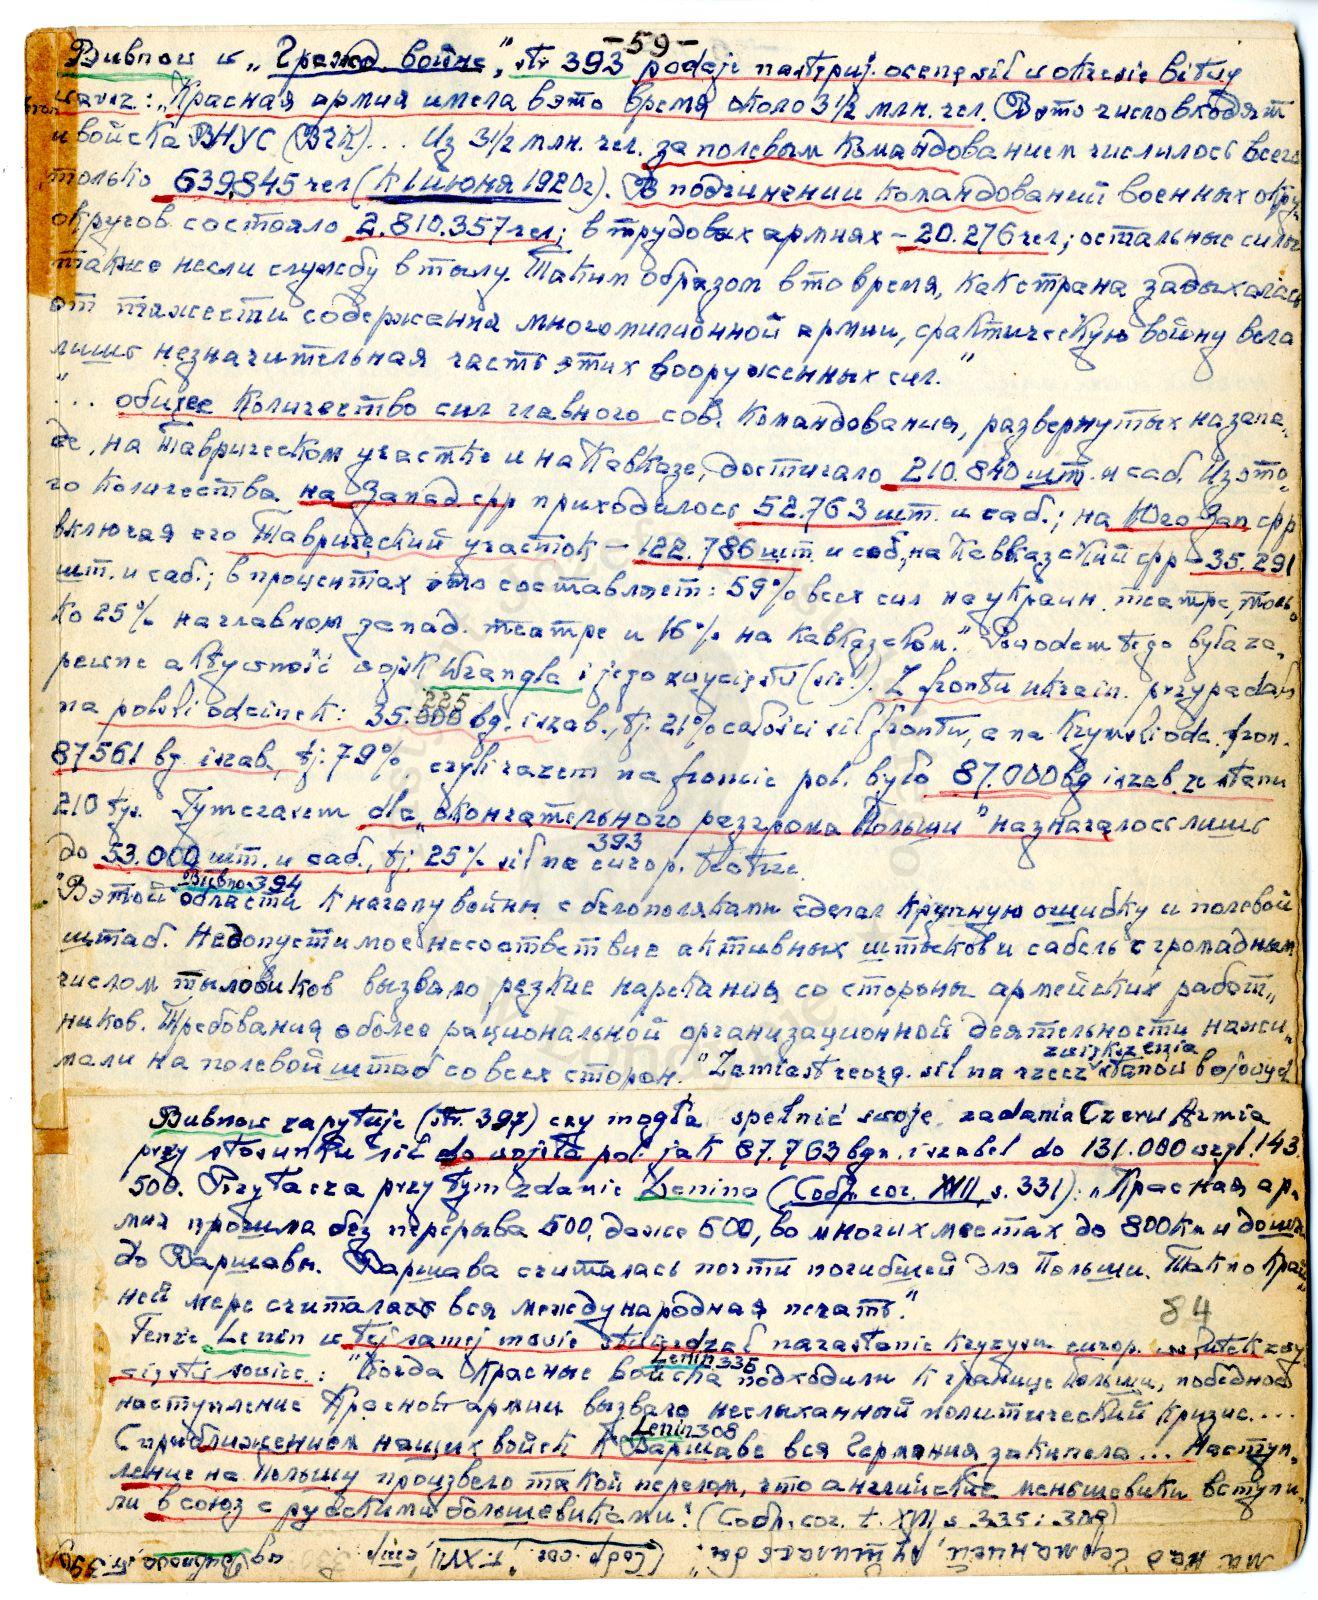 -59-
Бubnow w „Гражд. войне", str 393 podaje następuj. ocenę sił w okresie bitwy
warsz: „Красная армия имела в это время около 3½ млн. чел. В это число входят
и войска ВНУС (ВЧК)... Из 3½ млн. чел. за полевым командованием числилось всего
только 639.845 чел (к 1 июня 1920г). В подчинении командований военных окру-
округов состояло 2.810.357 чел; в трудовых армиях – 20.276 чел; остальные силы
также несли службу в тылу. Таким образом в то время, как страна задыхалась
от тяжести содержания многомилионной армии, фактическую войну вела
лишь незначительная часть этих вооруженных сил."
"... общее количество сил главного сов. командования, развернутых на запа-
де, на Таврическом участке и на Кавказе, достигало 210.840 шт. и саб. Из это-
го количества на Запад. фр приходилось 52.763 шт. и саб.; на Юго Зап фр
включая его Таврический участок – 122.786 шт. и саб, на Кавказский фр – 35.291
шт. и саб.; в процентах это составляет: 59% всех сил на украин. театре, толь-
ко 25% на главном запад. театре и 16% на Кавказском." Powodem tego była za-
pewne aktywność wojsk Wrangla i jego zwycięstw (sic!). Z frontu ukrain. przypadało
225
na polski odcinek: 35.000 bg. i szab., tj. 21% całości sił frontu, a na Krymski odc. fron.
87561 bg i szab, tj. 79% czyli razem na froncie pol. było 87.000 bg i szab. ze stanu
210 tys. Tymczasem dla „окончательного разгрома Польши" назначалось лишь
до 53.000 шт. и саб., tj. 25% sił na europ. teatrze.
393
Bubno 394
"В этой области к началу войны с белополяками сделал крупную ошибку и полевой
штаб. Недопустимое несоответствие активных штыков и сабель с громадным
числом тыловиков вызвало резкие нарекания со стороны армейских работ-
ников. Требования о более рациональной организационной деятельности нажи-
мали на полевой штаб со всех сторон." Zamiast reorg. sił na rzecz zwiększenia stanów bojowych
Bubnow zapytuje (str. 397) czy mogła spełnić swoje zadania Czerw Armia
przy stosunku sił do wojska pol. jak 87.763 bgn. i szabel do 131.000 wzgl. 143.
500. Przytacza przy tym zdanie Lenina (Собр. соч. XVII, s. 331): „Красная ар-
мия прошла без перерыва 500, даже 600, во многих местах до 800 км и дошла
до Варшавы. Варшава считалась почти погибшей для Польши. Так по край-
ней мере считала вся международная печать."
84
Tenże Lenin w tej samej mowie stwierdzał narastanie kryzysu europ. wskutek zwy-
cięstw sowiec.: "Когда Красные войска подходили к границе Польши, победное
Lenin 335
наступление Красной армии вызвало неслыханный политический кризис....
Lenin 308
С приближением наших войск к Варшаве вся Германия закипела... Наступ-
ление на Польшу произвело такой перелом, что английские меньшевики вступи-
ли в союз с русскими большевиками." (Собр. соч. t. XVII s. 335 i 308)